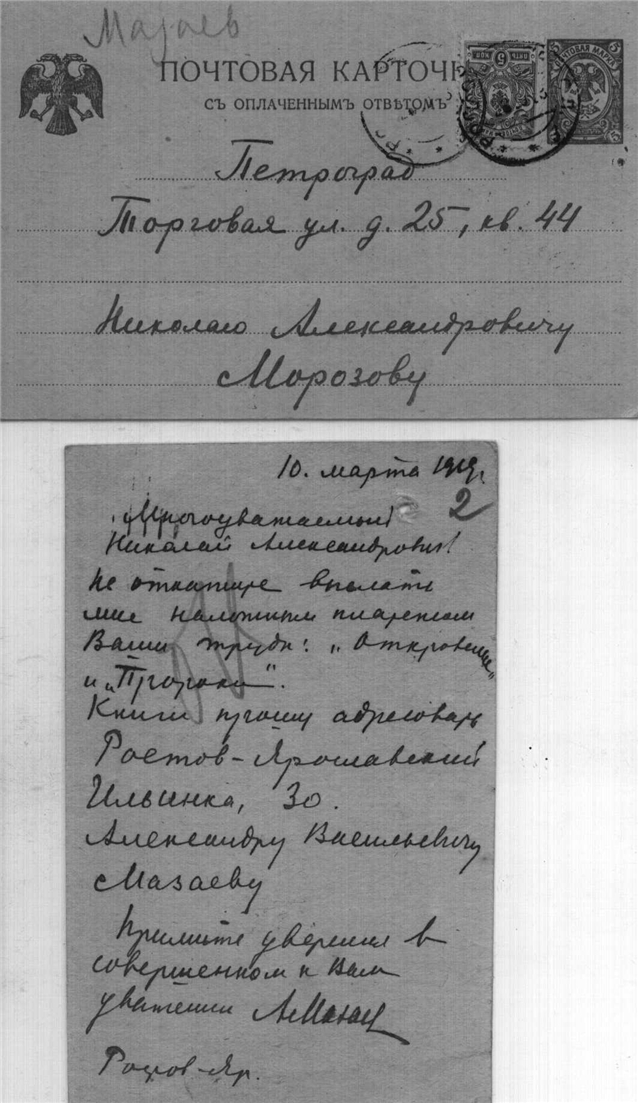 Мазаев
ПОЧТОВАЯ КАРТОЧ
СЪ ОПЛАЧЕННЫМЪ ОТВѢТОМЪ
Петроград
Торговая ул. д. 25, кв. 44
Николаю Александровичу
Морозову
10. марта 1919г.
2
Многоуважаемый
Николай Александрович!
Не откажите выслать
мне наложным платежом
Ваши труды: „Откровение"
и „Пророки".
Книги прошу адресовать
Ростов-Ярославский
Ильинка, 30.
Александру Васильевичу
Мазаеву
Примите уверения в
совершенном к Вам
уважении АМазаев
Ростов-Яр.